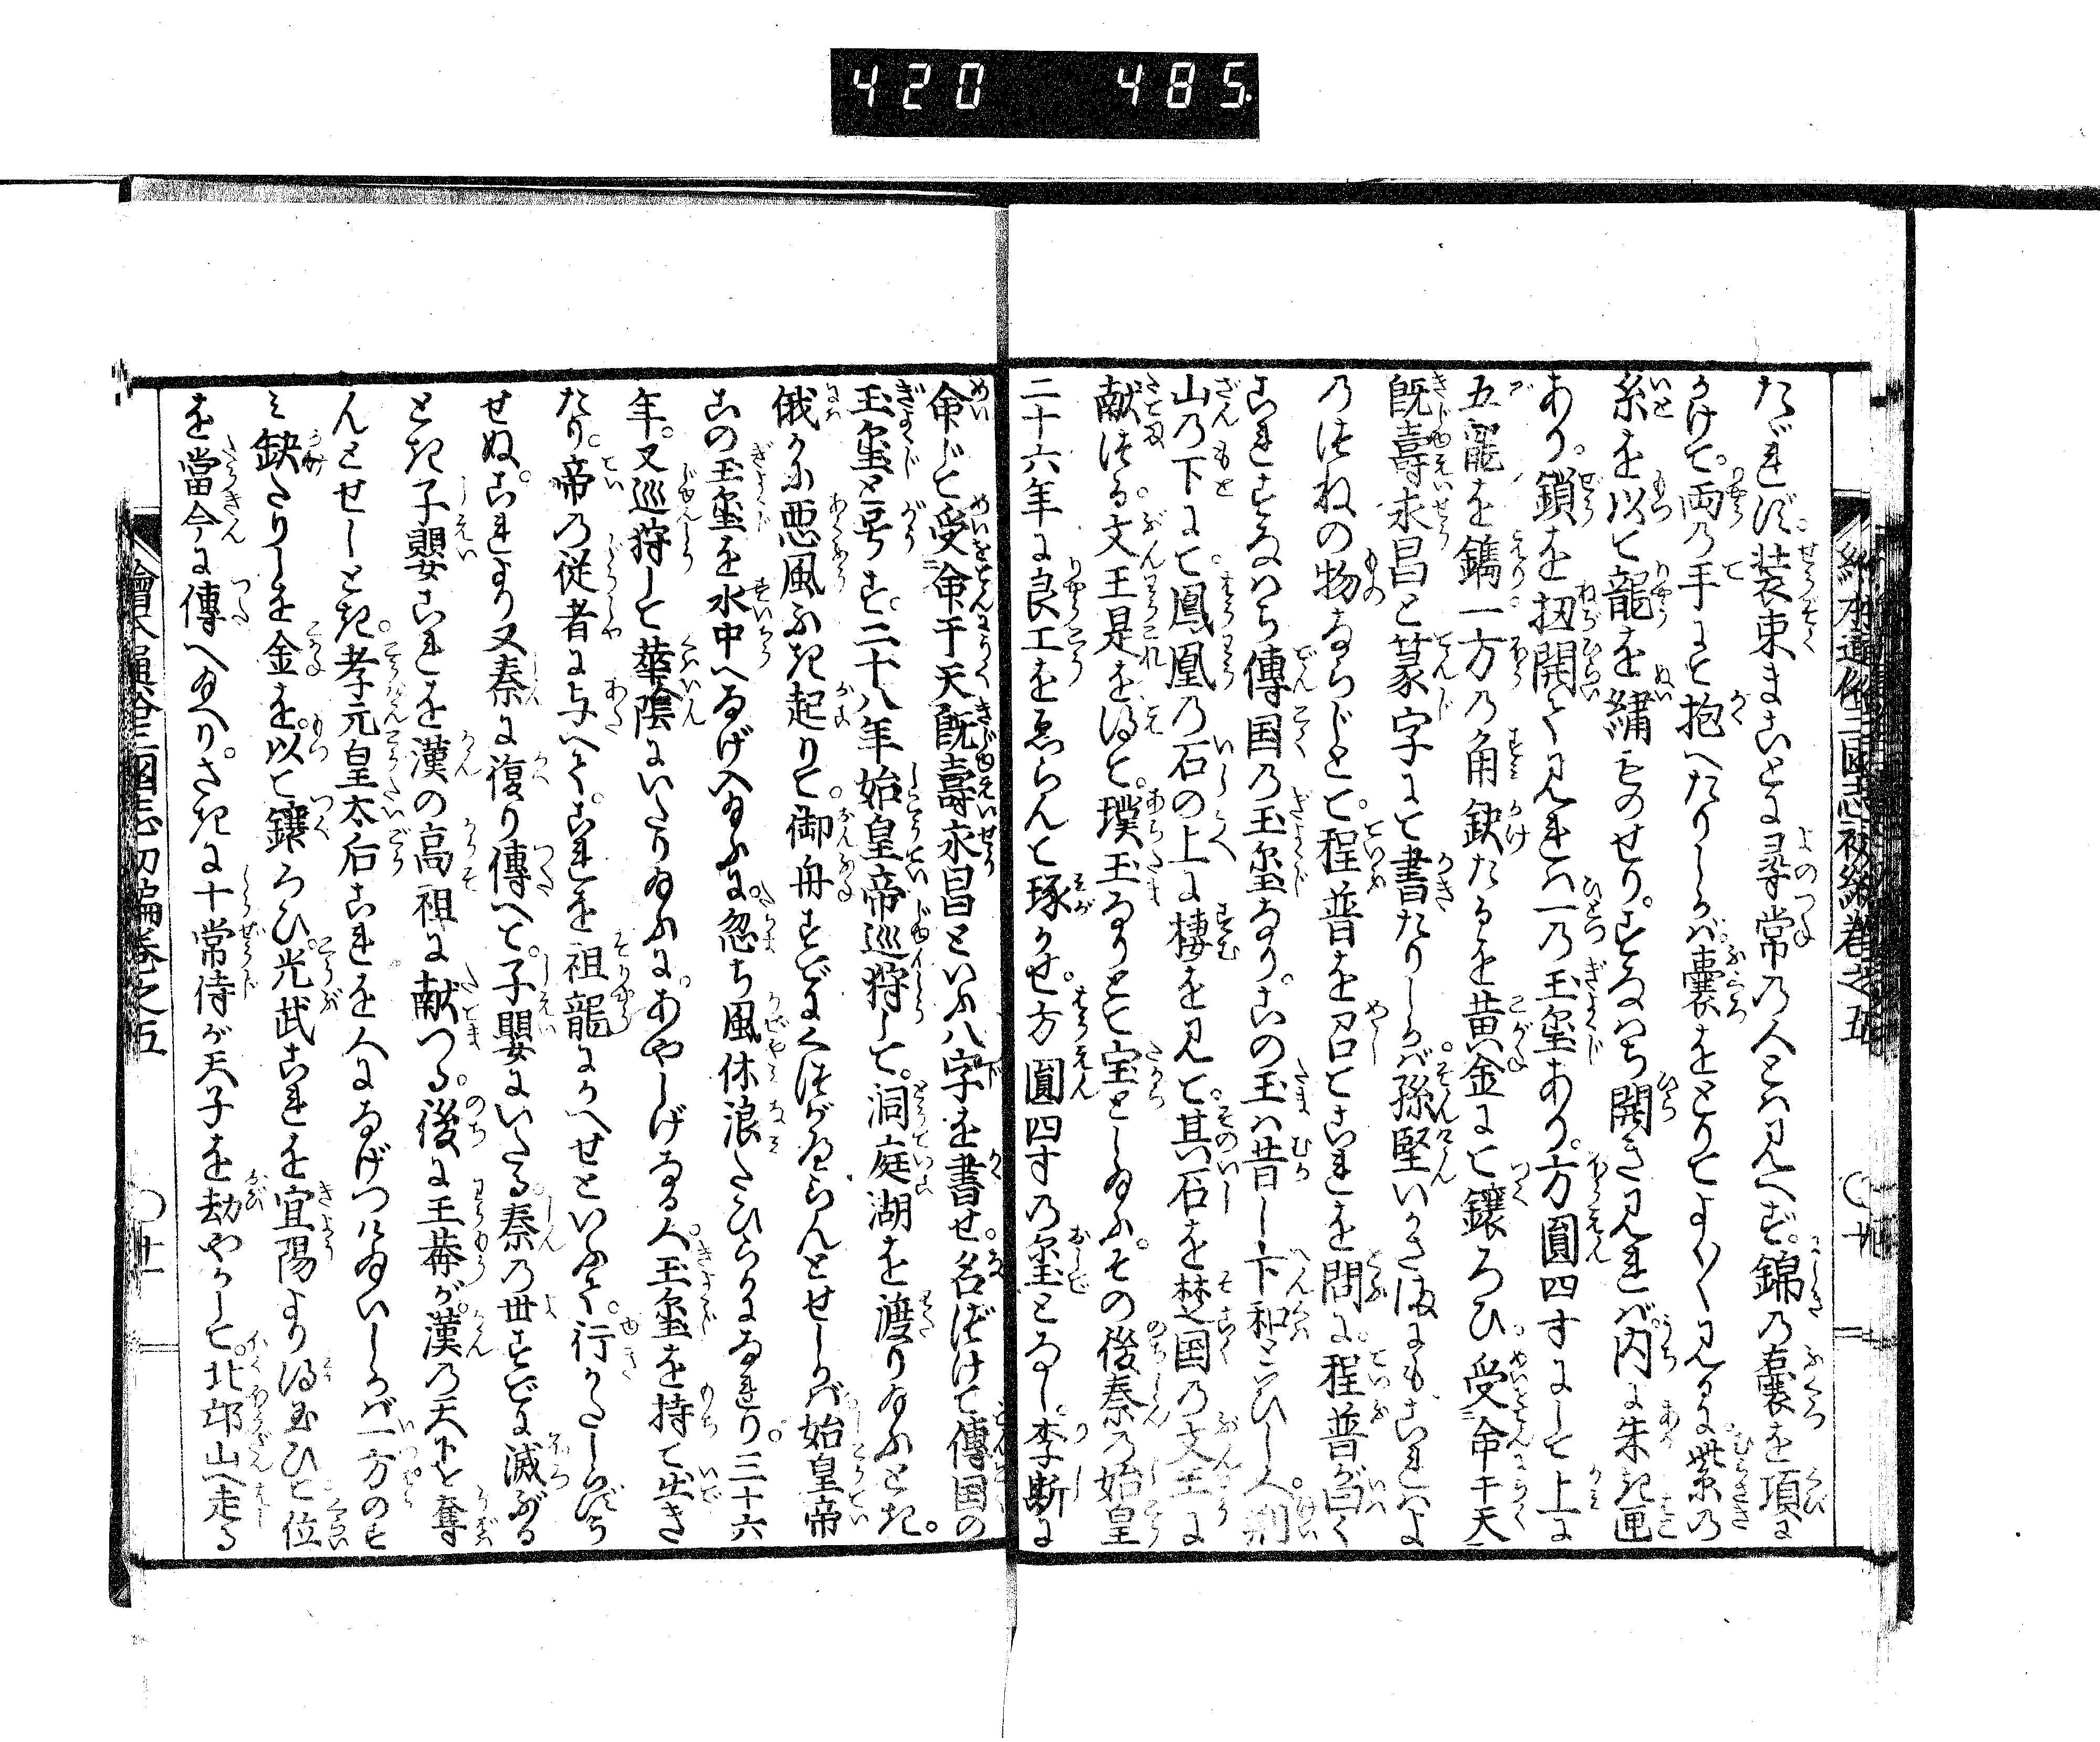 420 485
たゞれず。装束まことに尋常の人とは見へず。錦の嚢を項に
かけて。両の手にて抱へたりしが。嚢をとりてよく〳〵見るに。紫の
糸を以て龍を繍ものせり。すなはち開き見れば。内に朱き匣
あり。鎖を扭開て見れは一の玉璽あり。方圓四寸にして上に
五龍を鐫。一方の角缺たるを黄金にて鑲ろひ。受命于天
既壽永昌と篆字にて書たりしかば。孫堅いかさまにもこれはよ
のつねの物ならじとて。程普を召てこれを問に。程普が曰く
これすなはち傳国の玉璽なり。この玉は昔し卞和といひし人。荊
山の下にて。鳳凰の石の上に棲を見て。其石を楚国の文王に
献つる。文王是を得て。璞玉なりとて宝としゐふ。その後秦の始皇
二十六年に良工をゑらんて琢かせ。方圓四寸の璽となし。李斯に
命じて受命于天既壽永昌といふ八字を書せ。名づけて傳国の
玉璽と号す。二十八年始皇帝巡狩して。洞庭湖を渡り給ふとき。
俄かに悪風ふき起りて。御舟すでにくつがへらんとせしかば。始皇帝
この玉璽を水中へなげ入給ふに。忽ち風休浪たひらかになれり。三十六
年。又巡狩して華陰にいたり給ふに。あやしげなる人。玉璽を持て出き
たり。帝の従者に与へて。これを祖龍にかへせといふて。行かたしらずう
せぬ。これより又秦に復り傳へて。子嬰にいたる。秦の世すでに滅ぶる
とき子嬰これを漢の高祖に献つる。後に王莽が。漢の天下を奪
んとせしとき。孝元皇太后これを人になげつけ給いしかば。一方のす
み缺たりしを金を。以て鑲ろひ。光武これを宜陽より得玉ひて位
を當今に傳へ給へり。さきに十常侍が天子を劫やかして。北邙山へ走る
繪本通俗三國志初編巻之五